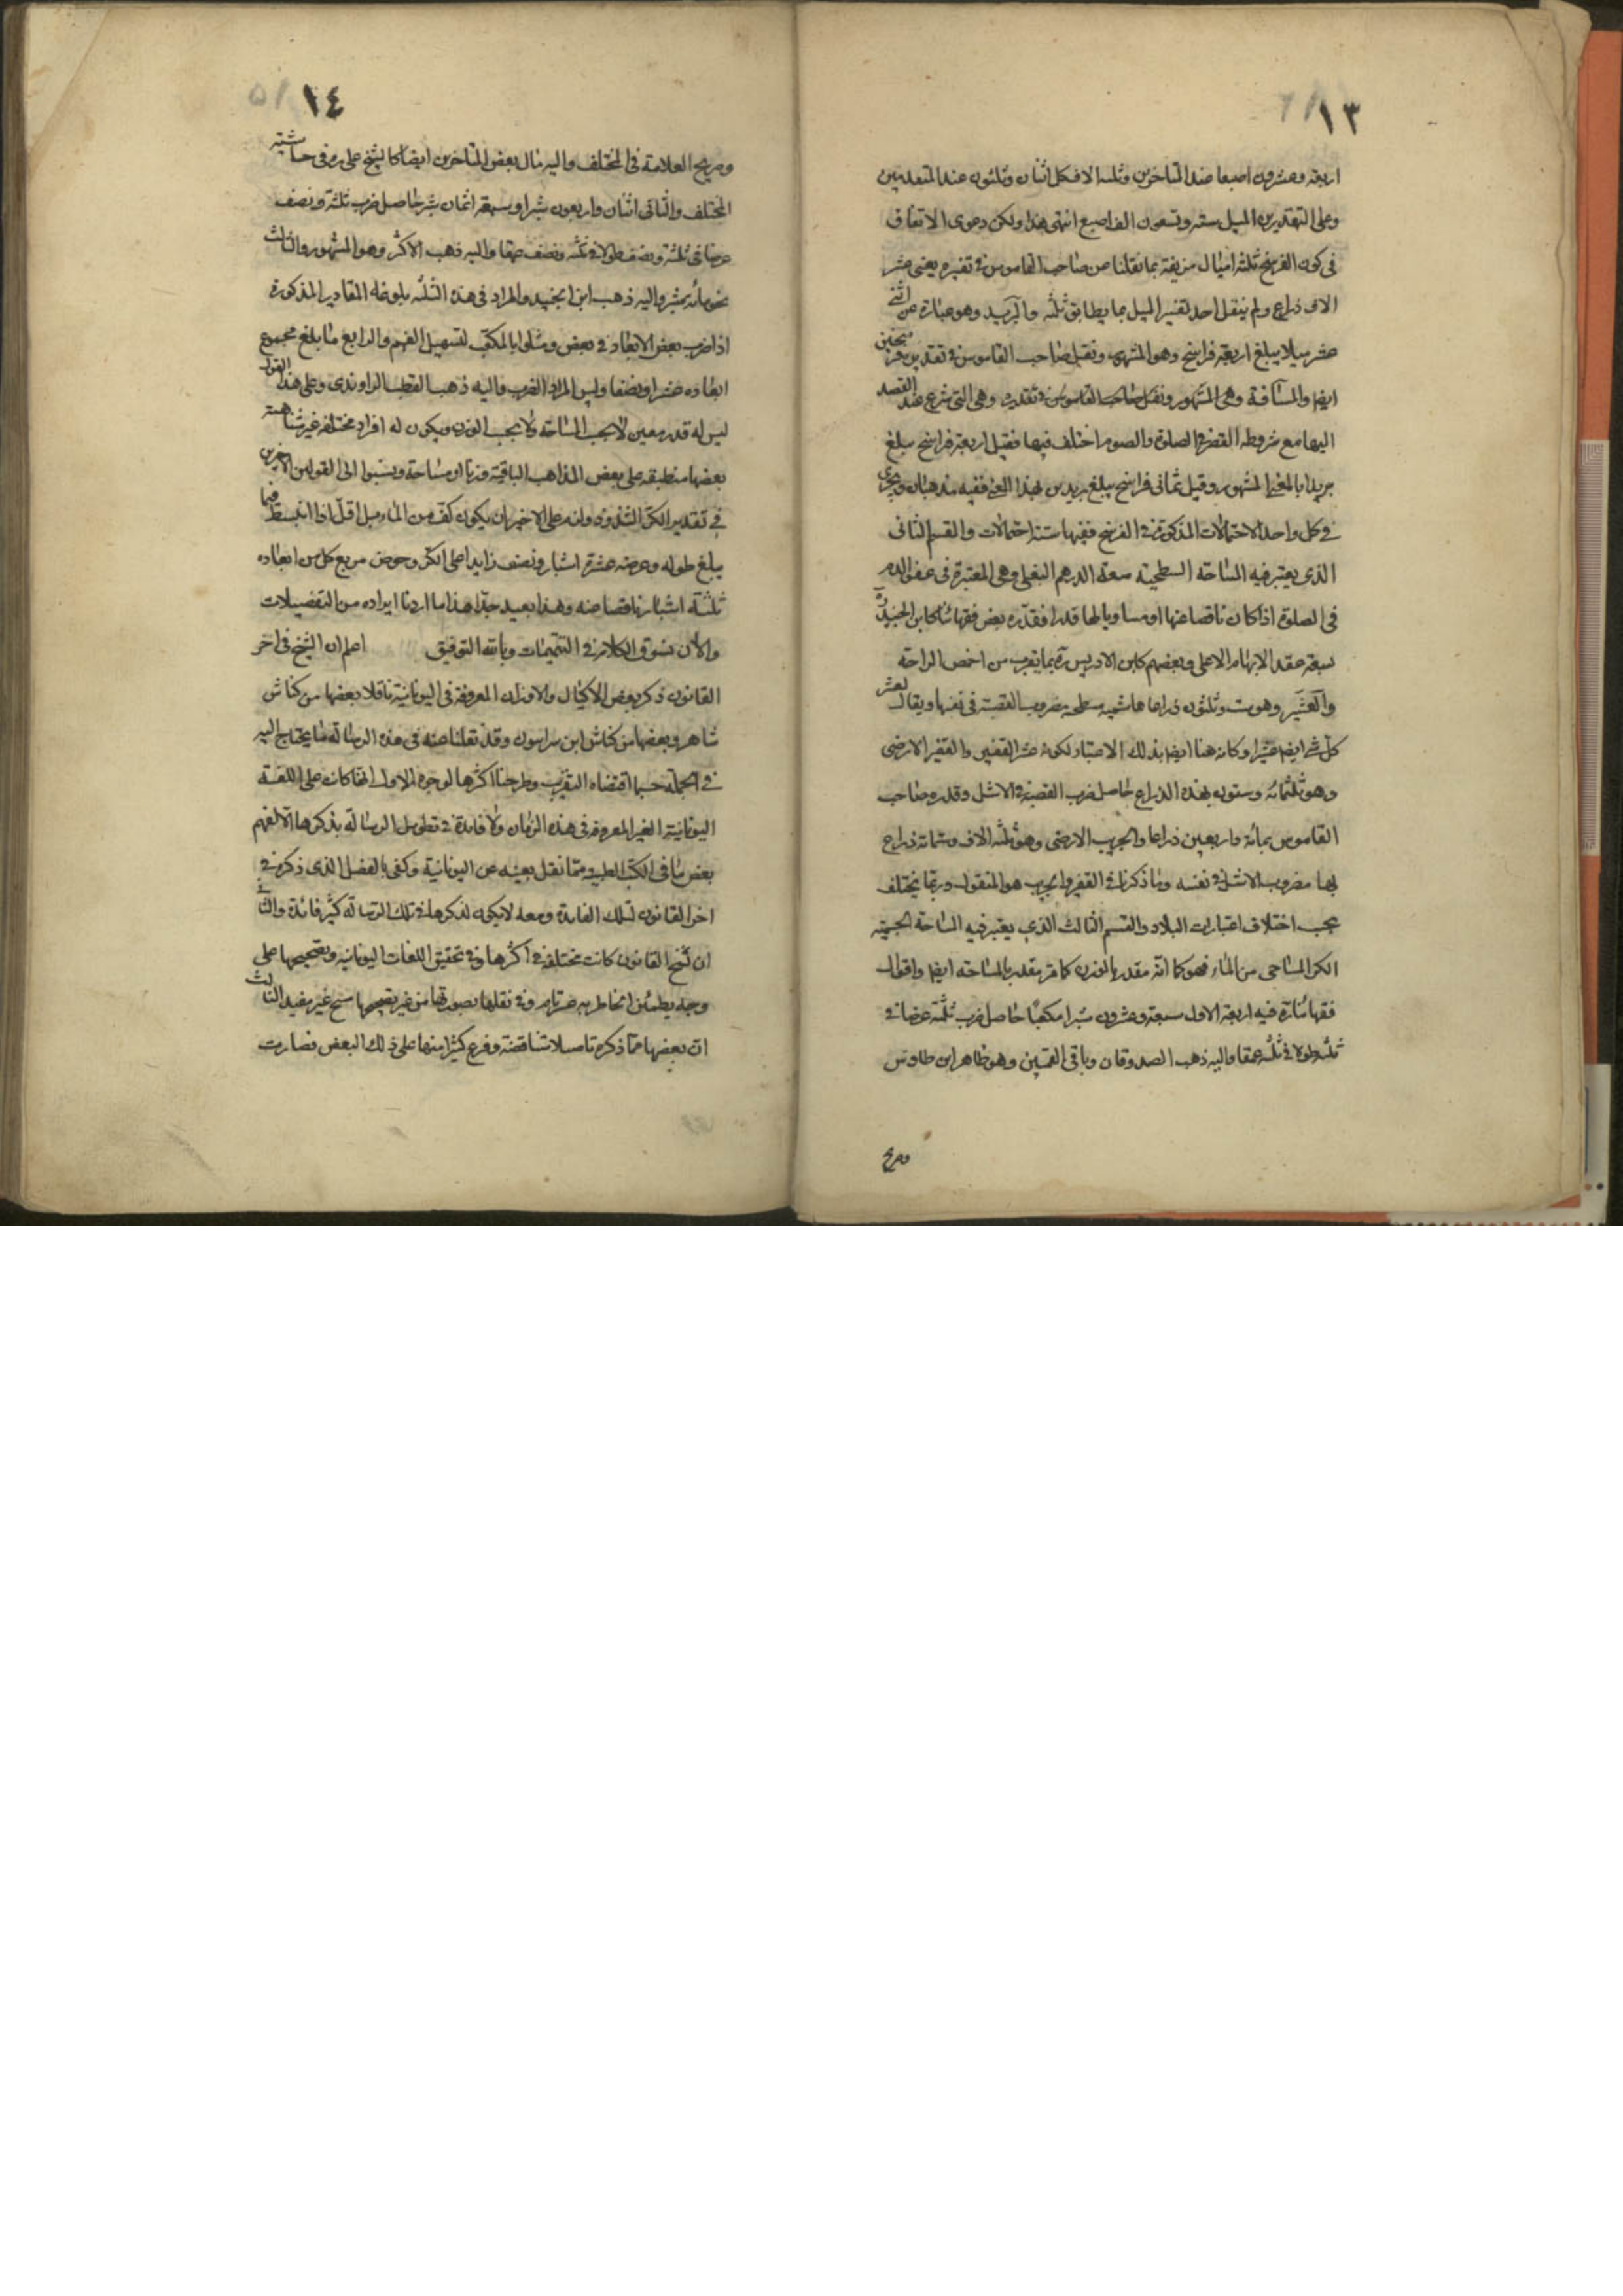 ١٣
اربعة وعشرون اصبعا عند المتاخرين وثلثة الاف كل اثنان وثلثون عند المتقدمين
وعلى التقديرين الميل ستة وتسعون الف اصبع انتهى هذا ولكن دعوى الاتفاق
فى كون الفرسخ ثلثة اميال مزيفة بما نقلنا عن صاحب القاموس فى تفسيره يعنى عشر
الاف ذراع ولم ينقل احد تفسير الميل بما يطابق ثلثه والبريد وهو عبارة عن اثنى
عشر ميلا يبلغ اربعة فراسخ وهو المشهور ونقل صاحب القاموس فى تقديره فرسخين
ايضا والمسافة وهى المشهور ونقل صاحب القاموس فى تقديره وهى التى شرع عند القصد
اليها مع شروطه القصر فى الصلوة والصوم اختلف فيها فقيل اربعة فراسخ مبلغ
بريدا بالمعنى المشهور وقيل ثمانى فراسخ يبلغ بريدين بهذا المعنى ففيه مذهبان ويجرى
فى كل واحد الاحتمالات المذكورة فى الفرسخ ففيها ستة احتمالات والقسم الثانى
الذى يعتبر فيه المساحة السطحية سعة الدرهم البغلى وهى المعتبرة فى عفو الدم
فى الصلوة اذا كان ناقصا عنها او مساويا لها قدرا فقدره بعض فقهائنا كابن الجنيد ره
بسعة عقد الابهام الاعلى وبعضهم كابن الادريس ره بما يقرب من اخمص الراحة
والعشير وهو ست وثلثون ذراعا هاشمية سطحية مضروب القصبة فى نفسها ويقال لعشر
كل شئ ايضا عشيرا وكانه هنا ايضا بذلك الاعتبار لكونه عشر القفيز والقفيز الارضى
وهو ثلثمائة وستون بهذه الذراع حاصل ضرب القصبة فى الاشل وقدره صاحب
القاموس بمائة واربعين ذراعا والجريب الارضى وهو ثلثة الاف وستمائة ذراع
بها مضروب الاشل فى نفسه وما ذكرنا فى القفيز والجريب هو المنقول وربما يختلف
بحسب اختلاف اعتبارات البلاد والقسم الثالث الذى يعتبر فيه المساحة الجسمية
الكر المساحى من الماء فهو كما انه مقدر بالوزن كما مر مقدر بالمساحة ايضا واقوال
فقهائنا ره فيه اربعة الاول سبعة وعشرون شبرا مكعبا حاصل ضرب ثلثة عرضا فى
ثلثة طولا فى ثلثة عمقا واليه ذهب الصدوقان وباقى القميين وهو ظاهر ابن طاوس
وصريح
١٤
وصريح العلامة فى المختلف واليه مال بعض المتاخرين ايضا كالشيخ على ره فى حاشية
المختلف والثانى اثنان واربعون شبرا وسبعة اثمان شبر حاصل ضرب ثلثة ونصف
عرضا فى ثلثة ونصف طولا فى ثلثة ونصف عمقا واليه ذهب الاكثر وهو المشهور والثالث
نحو مائة شبر واليه ذهب ابن الجنيد والمراد فى هذه الثلثة بلوغه المقادير المذكورة
اذا ضرب بعض الابعاد فى بعض ومثلوا بالمكعب لتسهيل الفهم والرابع ما بلغ مجموع
ابعاده عشرا ونصفا وليس المراد الضرب واليه ذهب القطب الراوندى وعلى هذا القول
ليس له قدر معين لا بحسب المساحة ولا بحسب الوزن ويكون له افراد مختلفة غير متناهية
بعضها منطبقة على بعض المذاهب الباقية وزنا او مساحة ونسبوا الى القولين الاخيرين
فى تقدير الكر الشذوذ وانه على الاخير ان يكون كف من الماء بل اقل اذا انبسط فيما
يبلغ طوله وعرضه عشرة اشبار ونصف زايدا على الكر وحوض مربع كل من ابعاده
ثلثة اشبار ناقصا عنه وهذا بعيد جدا هذا ما اردنا ايراده من التفصيلات
والان نسوق الكلام فى التتميمات وبالله التوفيق اعلم ان الشيخ فى اخر
القانون ذكر بعض الاكيال والاوزان المعروفة فى اليونانية ناقلا بعضها من كناش
شاهر وبعضها من كناش ابن سراسون وقد نقلنا عنه فى هذه الرسالة ما يحتاج اليه
فى الجملة حسبما اقتضاه التقريب وطرحنا اكثرها لوجوه الاول انها كانت على اللغة
اليونانية الغير المعروفة فى هذه الزمان ولا فايدة فى تطويل الرسالة بذكرها الا لفهم
بعض ما فى الكتب الطبية مما نقل بعينه عن اليونانية وكفى بالفصل الذى ذكره فى
اخر القانون لتلك الفايدة ومعه لا يكون لذكرها فى تلك الرسالة كثير فائدة والثانى
ان نسخ القانون كانت مختلفة فى اكثرها وفى تحقيق اللغات اليونانية وتصحيحها على
وجه يطمئن الخاطر به عسر تام وفى نقلها بصورتها من غير تصحيحها مسخ غير مفيد الثالث
ان بعضها مما ذكره تاصيلا تناقضه وفرع كثيرا منها على ذلك البعض فصارت